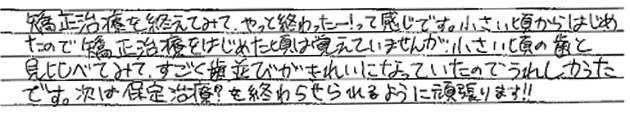 矯正治療を終えてみて、やっと終わったー！って感じです。小さい頃からはじめ
たので矯正治療をはじめた頃は覚えていませんが、小さい頃の歯と
見比べてみて、すごく歯並びがきれいになっていたのでうれしかった
です。次は保定治療？を終わらせられるように頑張ります!!